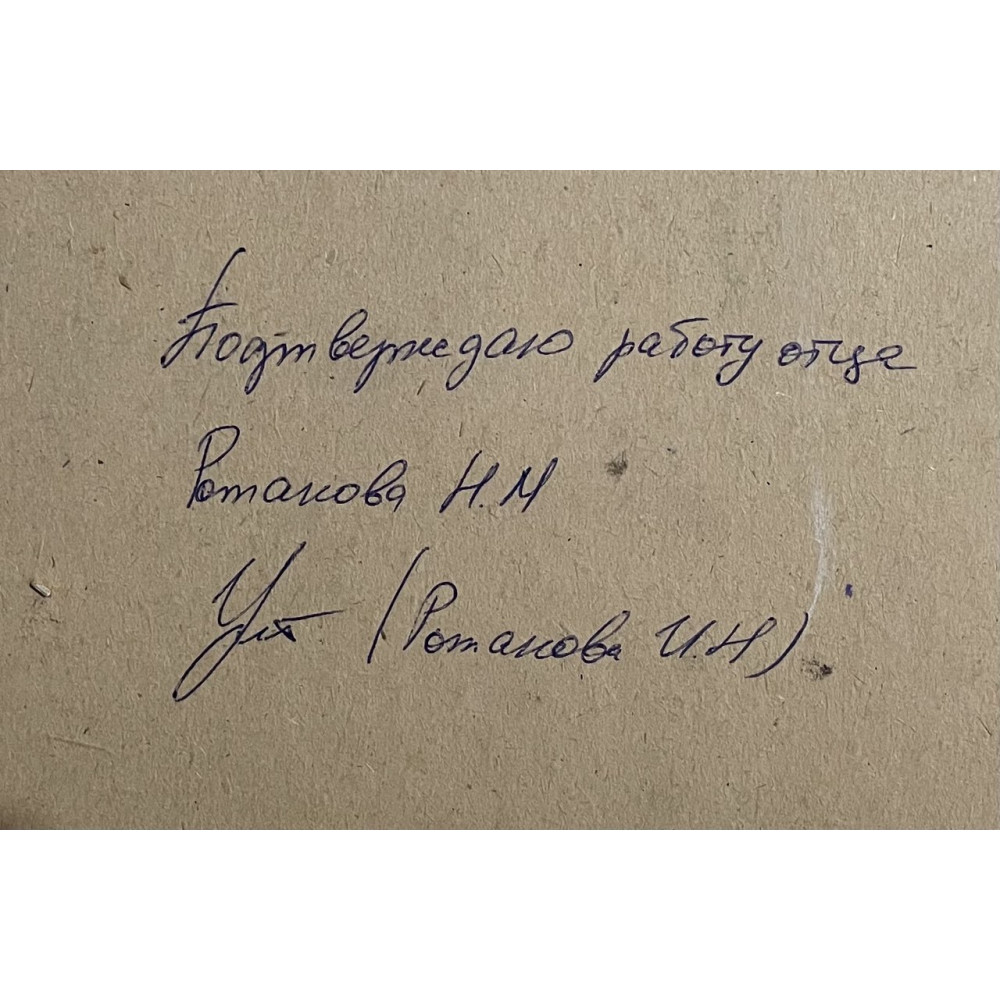 Подтверждаю работу отца
Ротанова Н.М
(Ротанова И.Н)